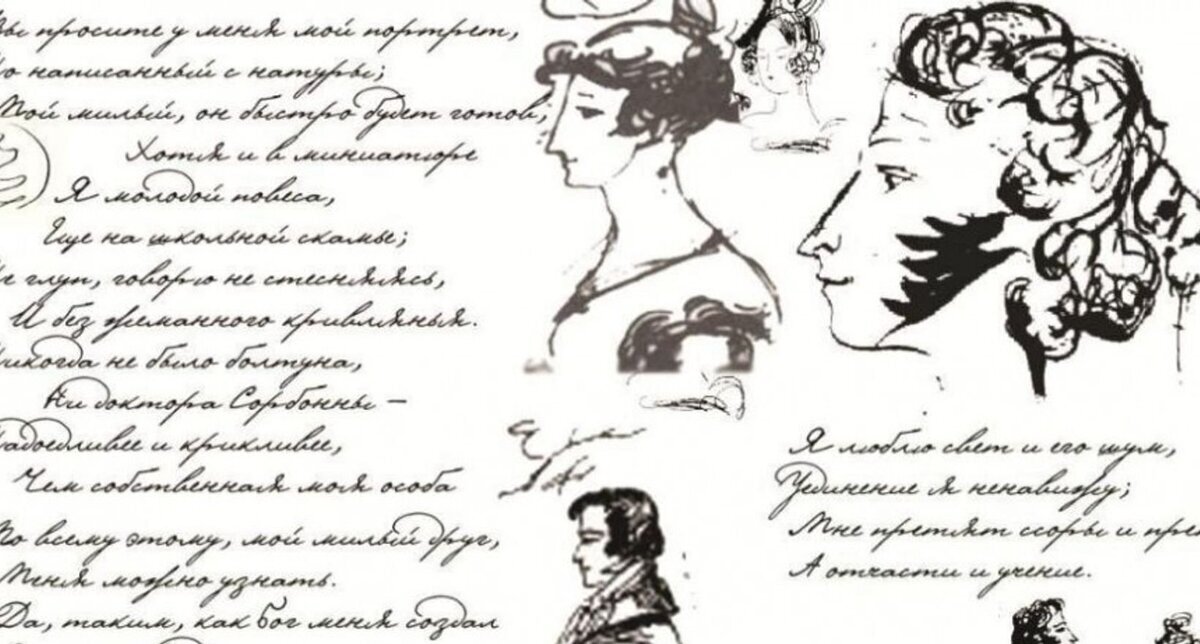 Вы просите у меня мой портрет,
Но написанный с натуры;
Мой милый, он быстро будет готов,
Хотя и в миниатюре
Я молодой повеса,
Еще на школьной скамье;
Не глуп, говорю не стесняясь,
И без жеманного кривлянья.
Никогда не было болтуна,
Ни доктора Сорбонны —
Надоедливее и крикливее,
Чем собственная моя особа
По всему этому, мой милый друг,
Меня можно узнать.
Да, таким, как бог меня создал
Я люблю свет и его шум,
Уединение я ненавижу;
Мне претят ссоры и
А отчасти и учение.